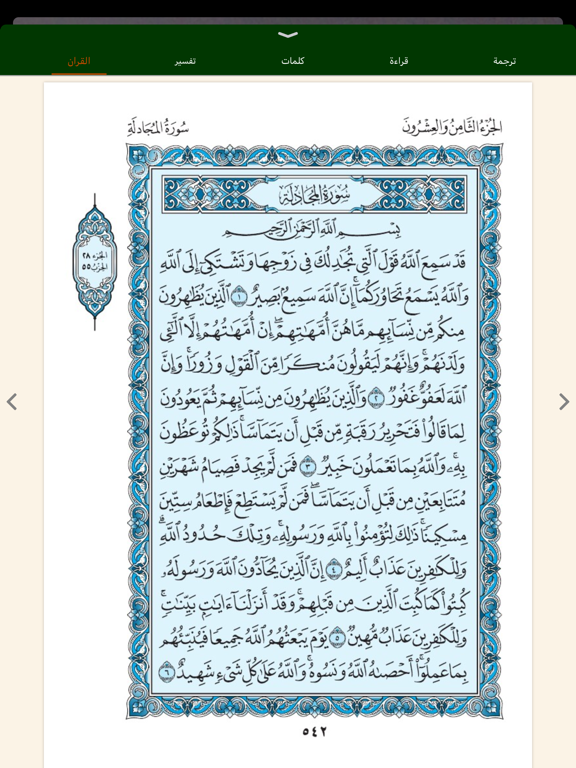 القرآن
تفسير
كلمات
قراءة
ترجمة
سُورَةُ المُجَادلَةِ
الجُزءُ الثَّامِنُ وَالعِشْرُونَ
سُورَةُ المُجَادلَةِ
بِسْمِ ٱللَّهِ ٱلرَّحْمَٰنِ ٱلرَّحِيمِ
الجزء ٢٨
الحزب ٥٥
قَدْ سَمِعَ ٱللَّهُ قَوْلَ ٱلَّتِى تُجَٰدِلُكَ فِى زَوْجِهَا وَتَشْتَكِىٓ إِلَى ٱللَّهِ
وَٱللَّهُ يَسْمَعُ تَحَاوُرَكُمَآ ۚ إِنَّ ٱللَّهَ سَمِيعٌۢ بَصِيرٌ ١ ٱلَّذِينَ يُظَٰهِرُونَ
مِنكُم مِّن نِّسَآئِهِم مَّا هُنَّ أُمَّهَٰتِهِمْ ۖ إِنْ أُمَّهَٰتُهُمْ إِلَّا ٱلَّٰٓـِٔى
وَلَدْنَهُمْ ۚ وَإِنَّهُمْ لَيَقُولُونَ مُنكَرًا مِّنَ ٱلْقَوْلِ وَزُورًا ۚ وَإِنَّ
ٱللَّهَ لَعَفُوٌّ غَفُورٌ ٢ وَٱلَّذِينَ يُظَٰهِرُونَ مِن نِّسَآئِهِمْ ثُمَّ يَعُودُونَ
لِمَا قَالُوا۟ فَتَحْرِيرُ رَقَبَةٍ مِّن قَبْلِ أَن يَتَمَآسَّا ۚ ذَٰلِكُمْ تُوعَظُونَ
بِهِۦ ۚ وَٱللَّهُ بِمَا تَعْمَلُونَ خَبِيرٌ ٣ فَمَن لَّمْ يَجِدْ فَصِيَامُ شَهْرَيْنِ
مُتَتَابِعَيْنِ مِن قَبْلِ أَن يَتَمَآسَّا ۖ فَمَن لَّمْ يَسْتَطِعْ فَإِطْعَامُ سِتِّينَ
مِسْكِينًا ۚ ذَٰلِكَ لِتُؤْمِنُوا۟ بِٱللَّهِ وَرَسُولِهِۦ ۚ وَتِلْكَ حُدُودُ ٱللَّهِ ۗ
وَلِلْكَٰفِرِينَ عَذَابٌ أَلِيمٌ ٤ إِنَّ ٱلَّذِينَ يُحَآدُّونَ ٱللَّهَ وَرَسُولَهُۥ
كُبِتُوا۟ كَمَا كُبِتَ ٱلَّذِينَ مِن قَبْلِهِمْ ۚ وَقَدْ أَنزَلْنَآ ءَايَٰتٍۭ بَيِّنَٰتٍ ۚ
وَلِلْكَٰفِرِينَ عَذَابٌ مُّهِينٌ ٥ يَوْمَ يَبْعَثُهُمُ ٱللَّهُ جَمِيعًا فَيُنَبِّئُهُم
بِمَا عَمِلُوٓا۟ ۚ أَحْصَىٰهُ ٱللَّهُ وَنَسُوهُ ۚ وَٱللَّهُ عَلَىٰ كُلِّ شَىْءٍ شَهِيدٌ ٦
٥٤٢